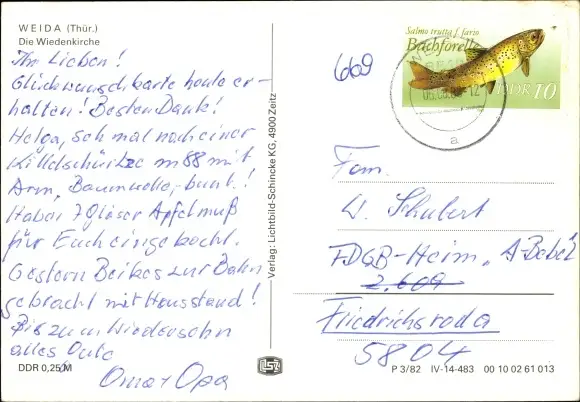 WEIDA (Thür.)
Die Wiedenkirche
Ihr Lieben!
Glückwunschkarte heute er-
halten! Besten Dank!
Helga, seh mal nach einer
Kittelschürze m 88 mit
Arm, Baumwolle, bunt.!
Haben 7 Gläser Apfelmuß
für Euch eingekocht.
Gestern Beikes zur Bahn
gebracht mit Hausstand!
Bis zum Wiedersehn
alles Gute
Oma + Opa
DDR 0,25 M
Verlag: Lichtbild-Schincke KG, 4900 Zeitz
669
Salmo trutta f. fario
Bachforelle
DDR 10
a
Fam.
W. Schubert
FDGB-Heim, "A-Bebel"
2.609
Friedrichsroda
5804
P 3/82 IV-14-483 00 10 02 61 013